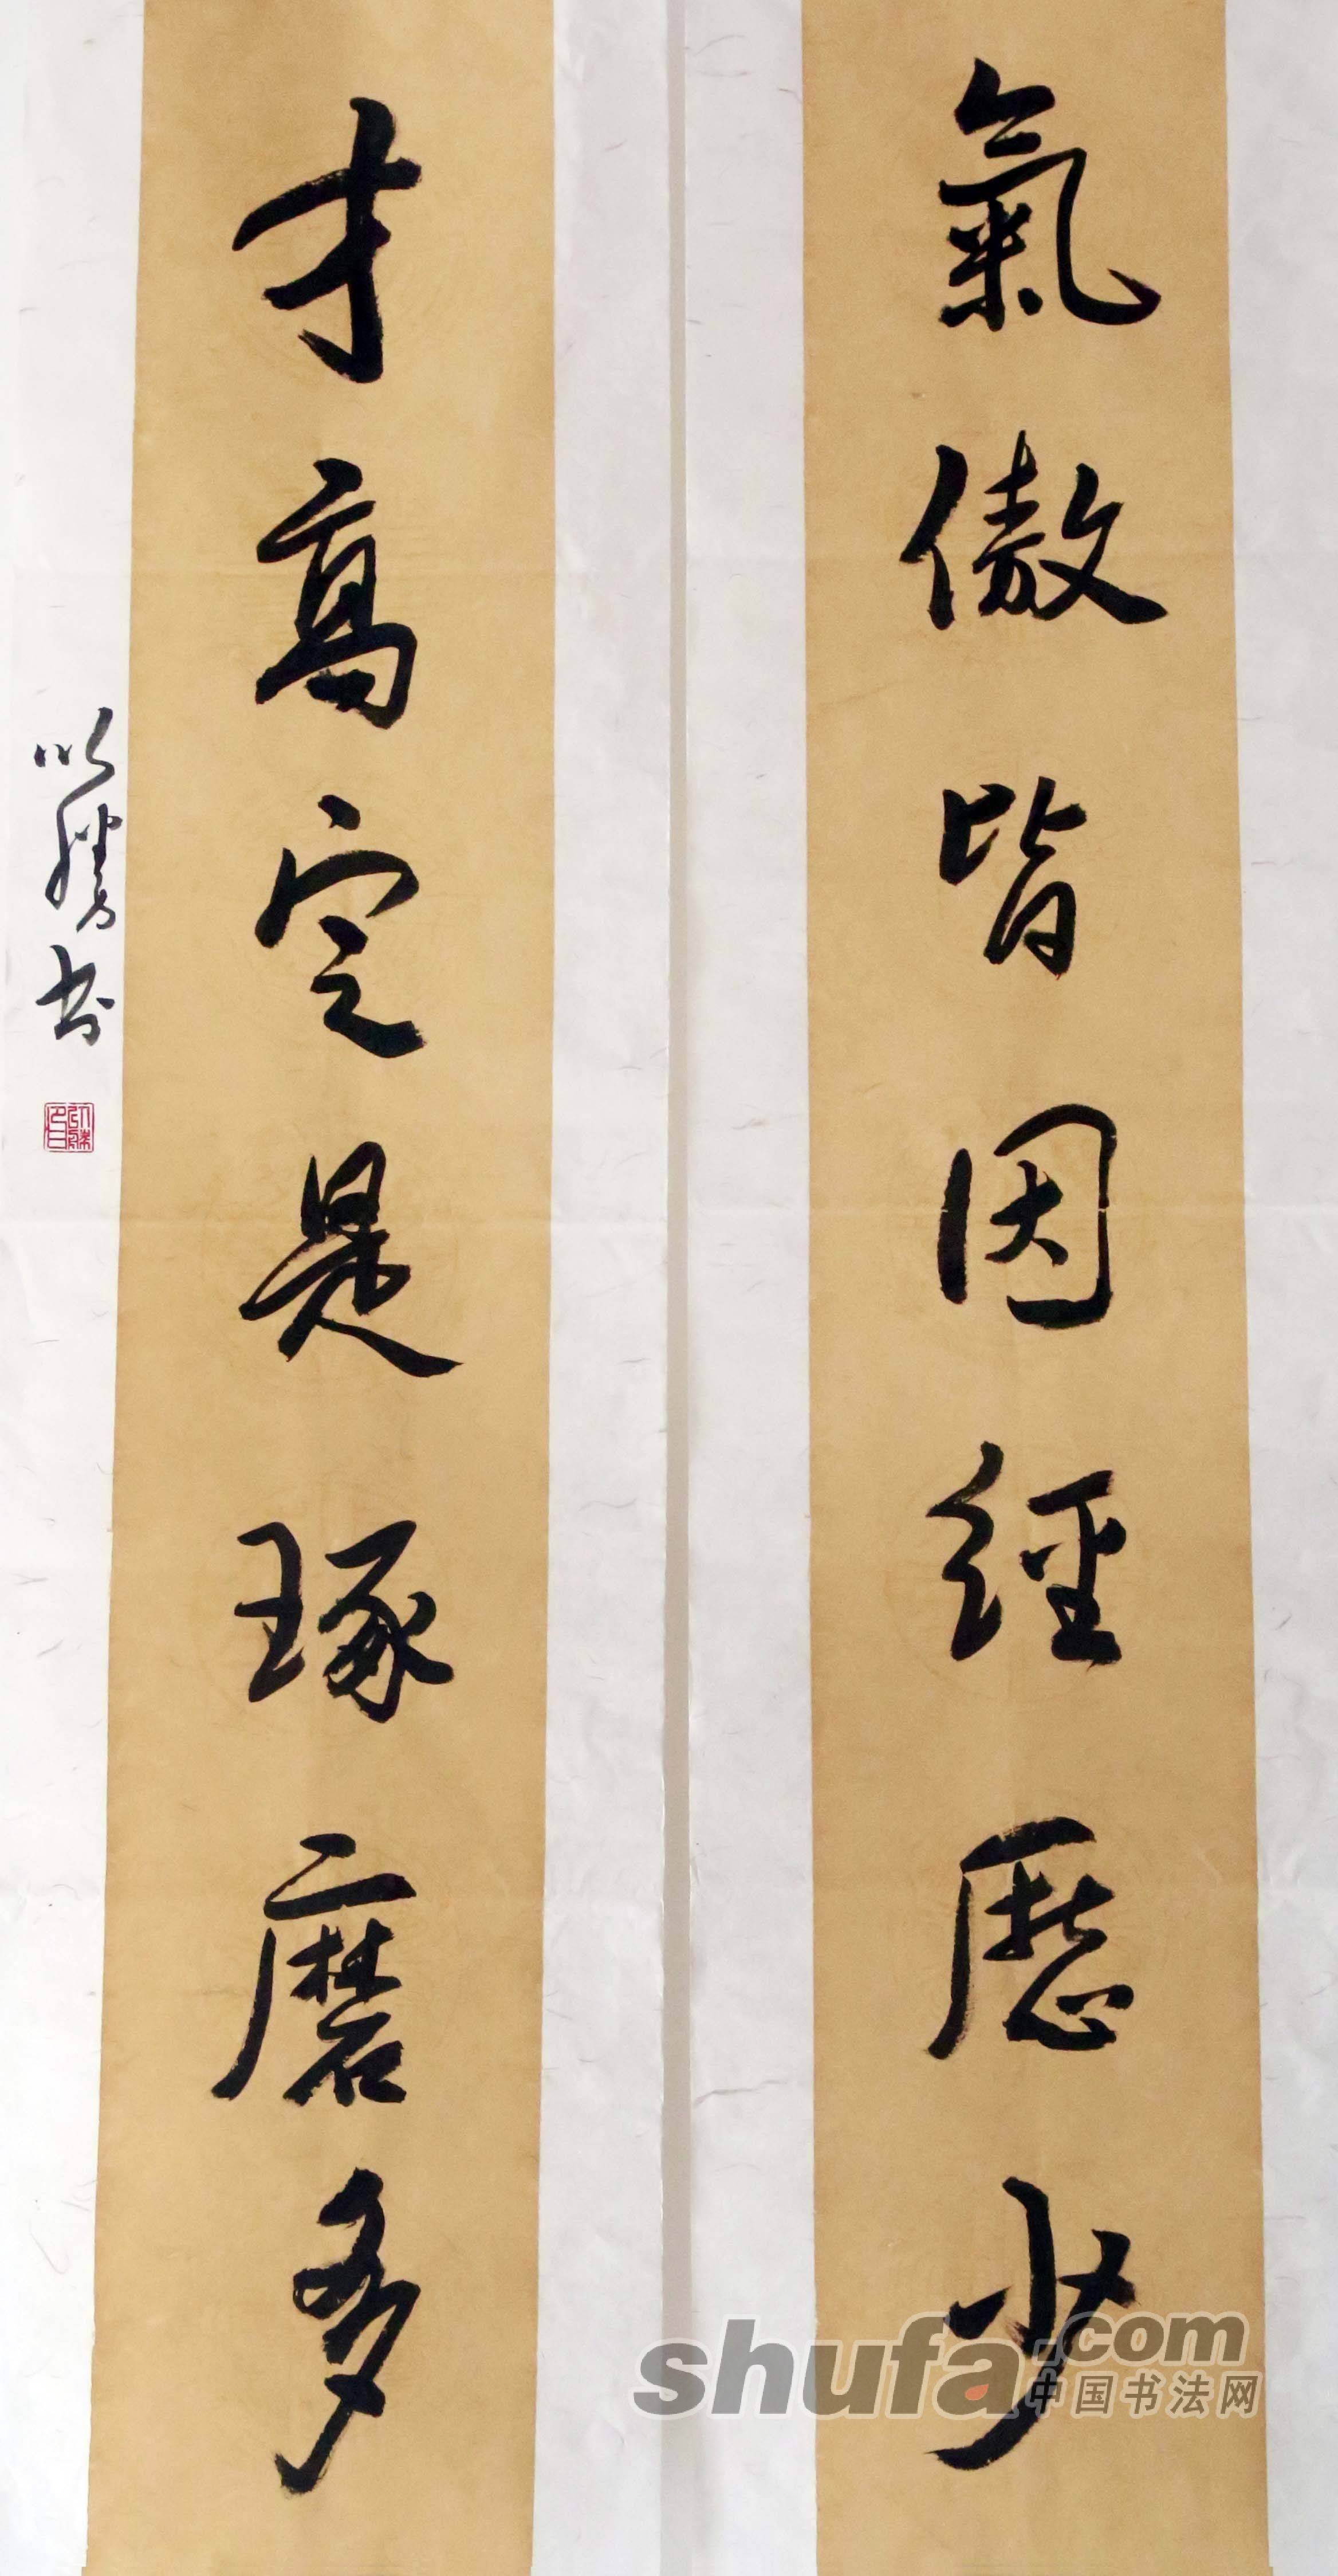 氣傲皆因經歷少
才高定是琢磨多
以勝书
shufa.com
中国书法网